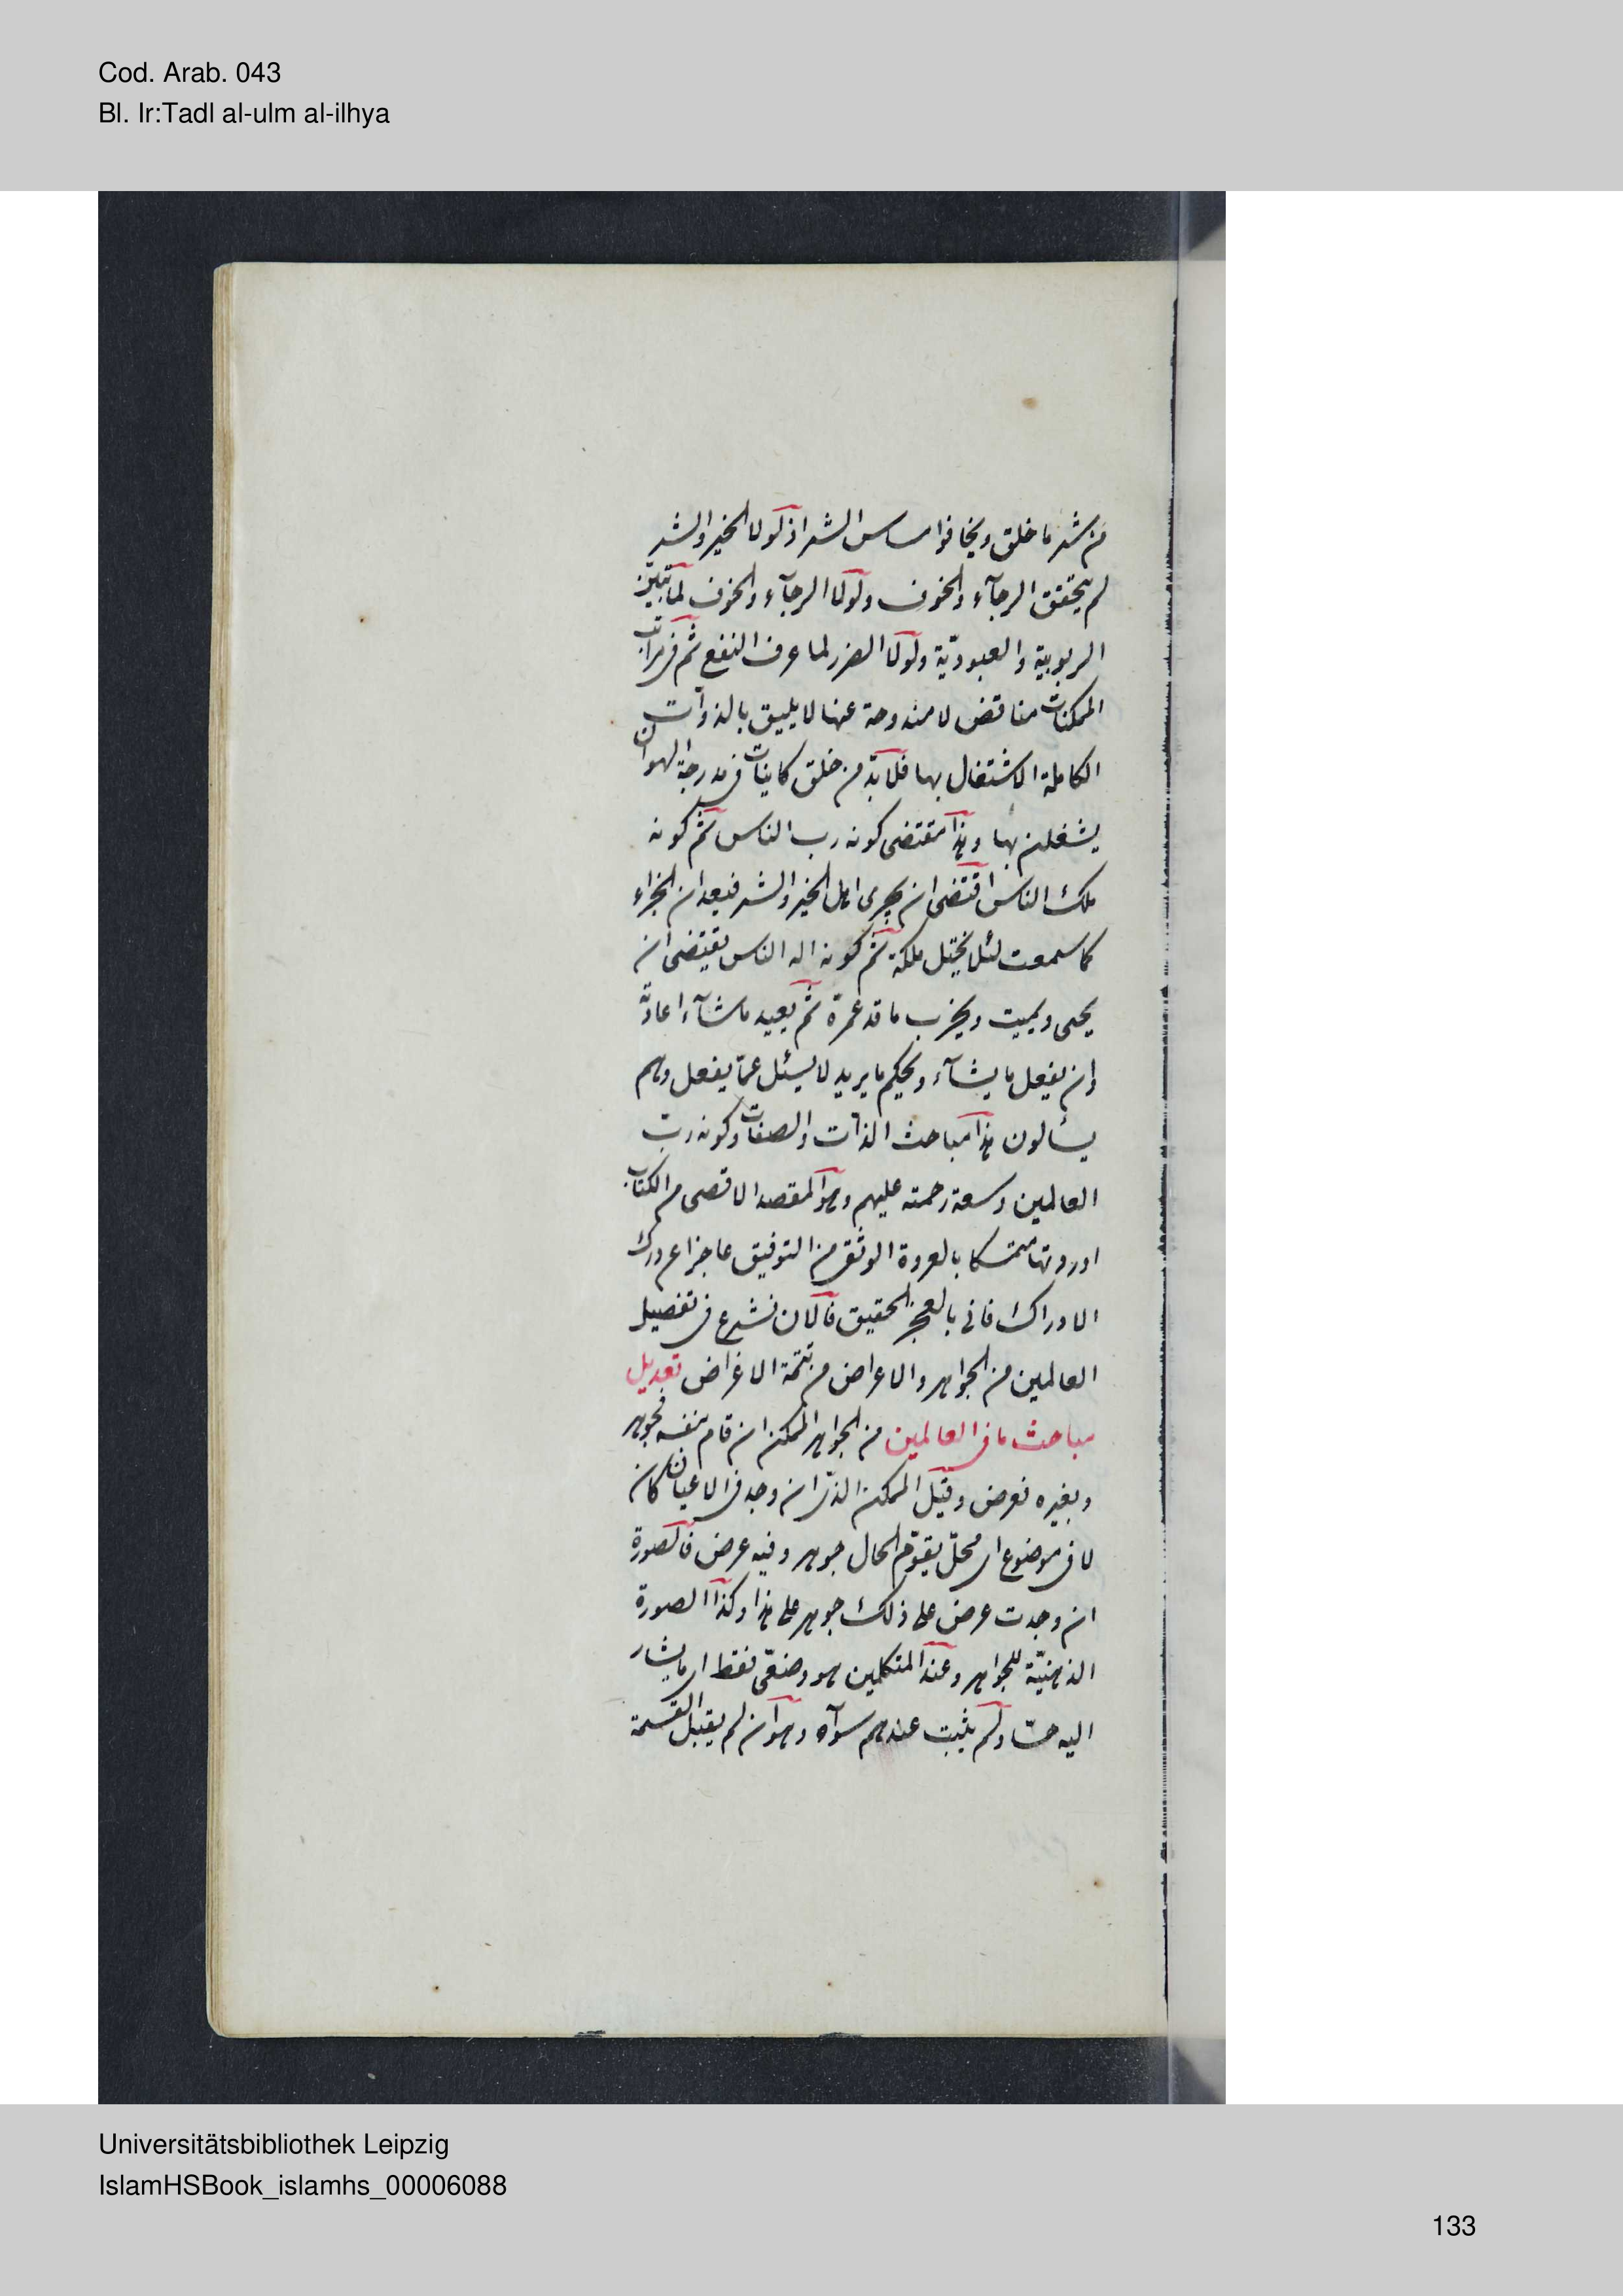 Cod. Arab. 043
Bl. Ir:Tadl al-ulm al-ilhya
من شر ما خلق ويخافوا مساس الشر اذ لولا الخير والشر
لم يتحقق الرجآء والخوف ولولا الرجآء والخوف لما تميّز
الربوبية والعبوديّة ولولا الضرر لما عرف النفع ثم في مراتب
الممكنات مناقص لا مندوحة عنها لا يليق بالذوات
الكاملة الاشتغال بها فلابدّ من خلق كاينات في مدرجة الهوان
يشغلن بها وهذا مقتضى كونه رب الناس ثم كونه
ملك الناس اقتضى ان يجرى اهل الخير والشر فيعدان الجزاء
كما سمعت لئلا يختل ملكه ثم كونه اله الناس يقتضى ان
يحيى ويميت ويخرب ما قد عمرّه ثم يعيد ما شآء اعادته
وان يفعل ما يشآء ويحكم ما يريد لا يسئل عمّا يفعل وهم
يسألون هذا مباحث الذات والصفات وكونه ربّ
العالمين وسعة رحمته عليهم وهو المقصد الاقصى من الكتاب
اوردتها متمسكا بالعروة الوثقى من التوفيق عاجزا عن درك
الادراك فانى بالعجز لحقيق فالان نشرع في تفصيل
العالمين من الجواهر والاعراض من تتمة الاغراض تعديل
مباحث ما في العالمين من الجواهر الممكن ان قام بنفسه فجوهر
وبغيره فعرض وقيل الممكن الذى ان وجد في الاعيان كان
لا في موضوع اى محلّ يقوّم الحال جوهر وفيه عرض فالصورة
ان وجدت عرض على ذلك جوهر على هذا وكذا الصورة
الذهنيّة للجواهر وعند المتكلمين هو وضعّى فقط اى ما يشار
اليه حسّا ولم يثبت عندهم سوآه وهو ان لم يقبل القسمة
Universitätsbibliothek Leipzig
IslamHSBook_islamhs_00006088
133